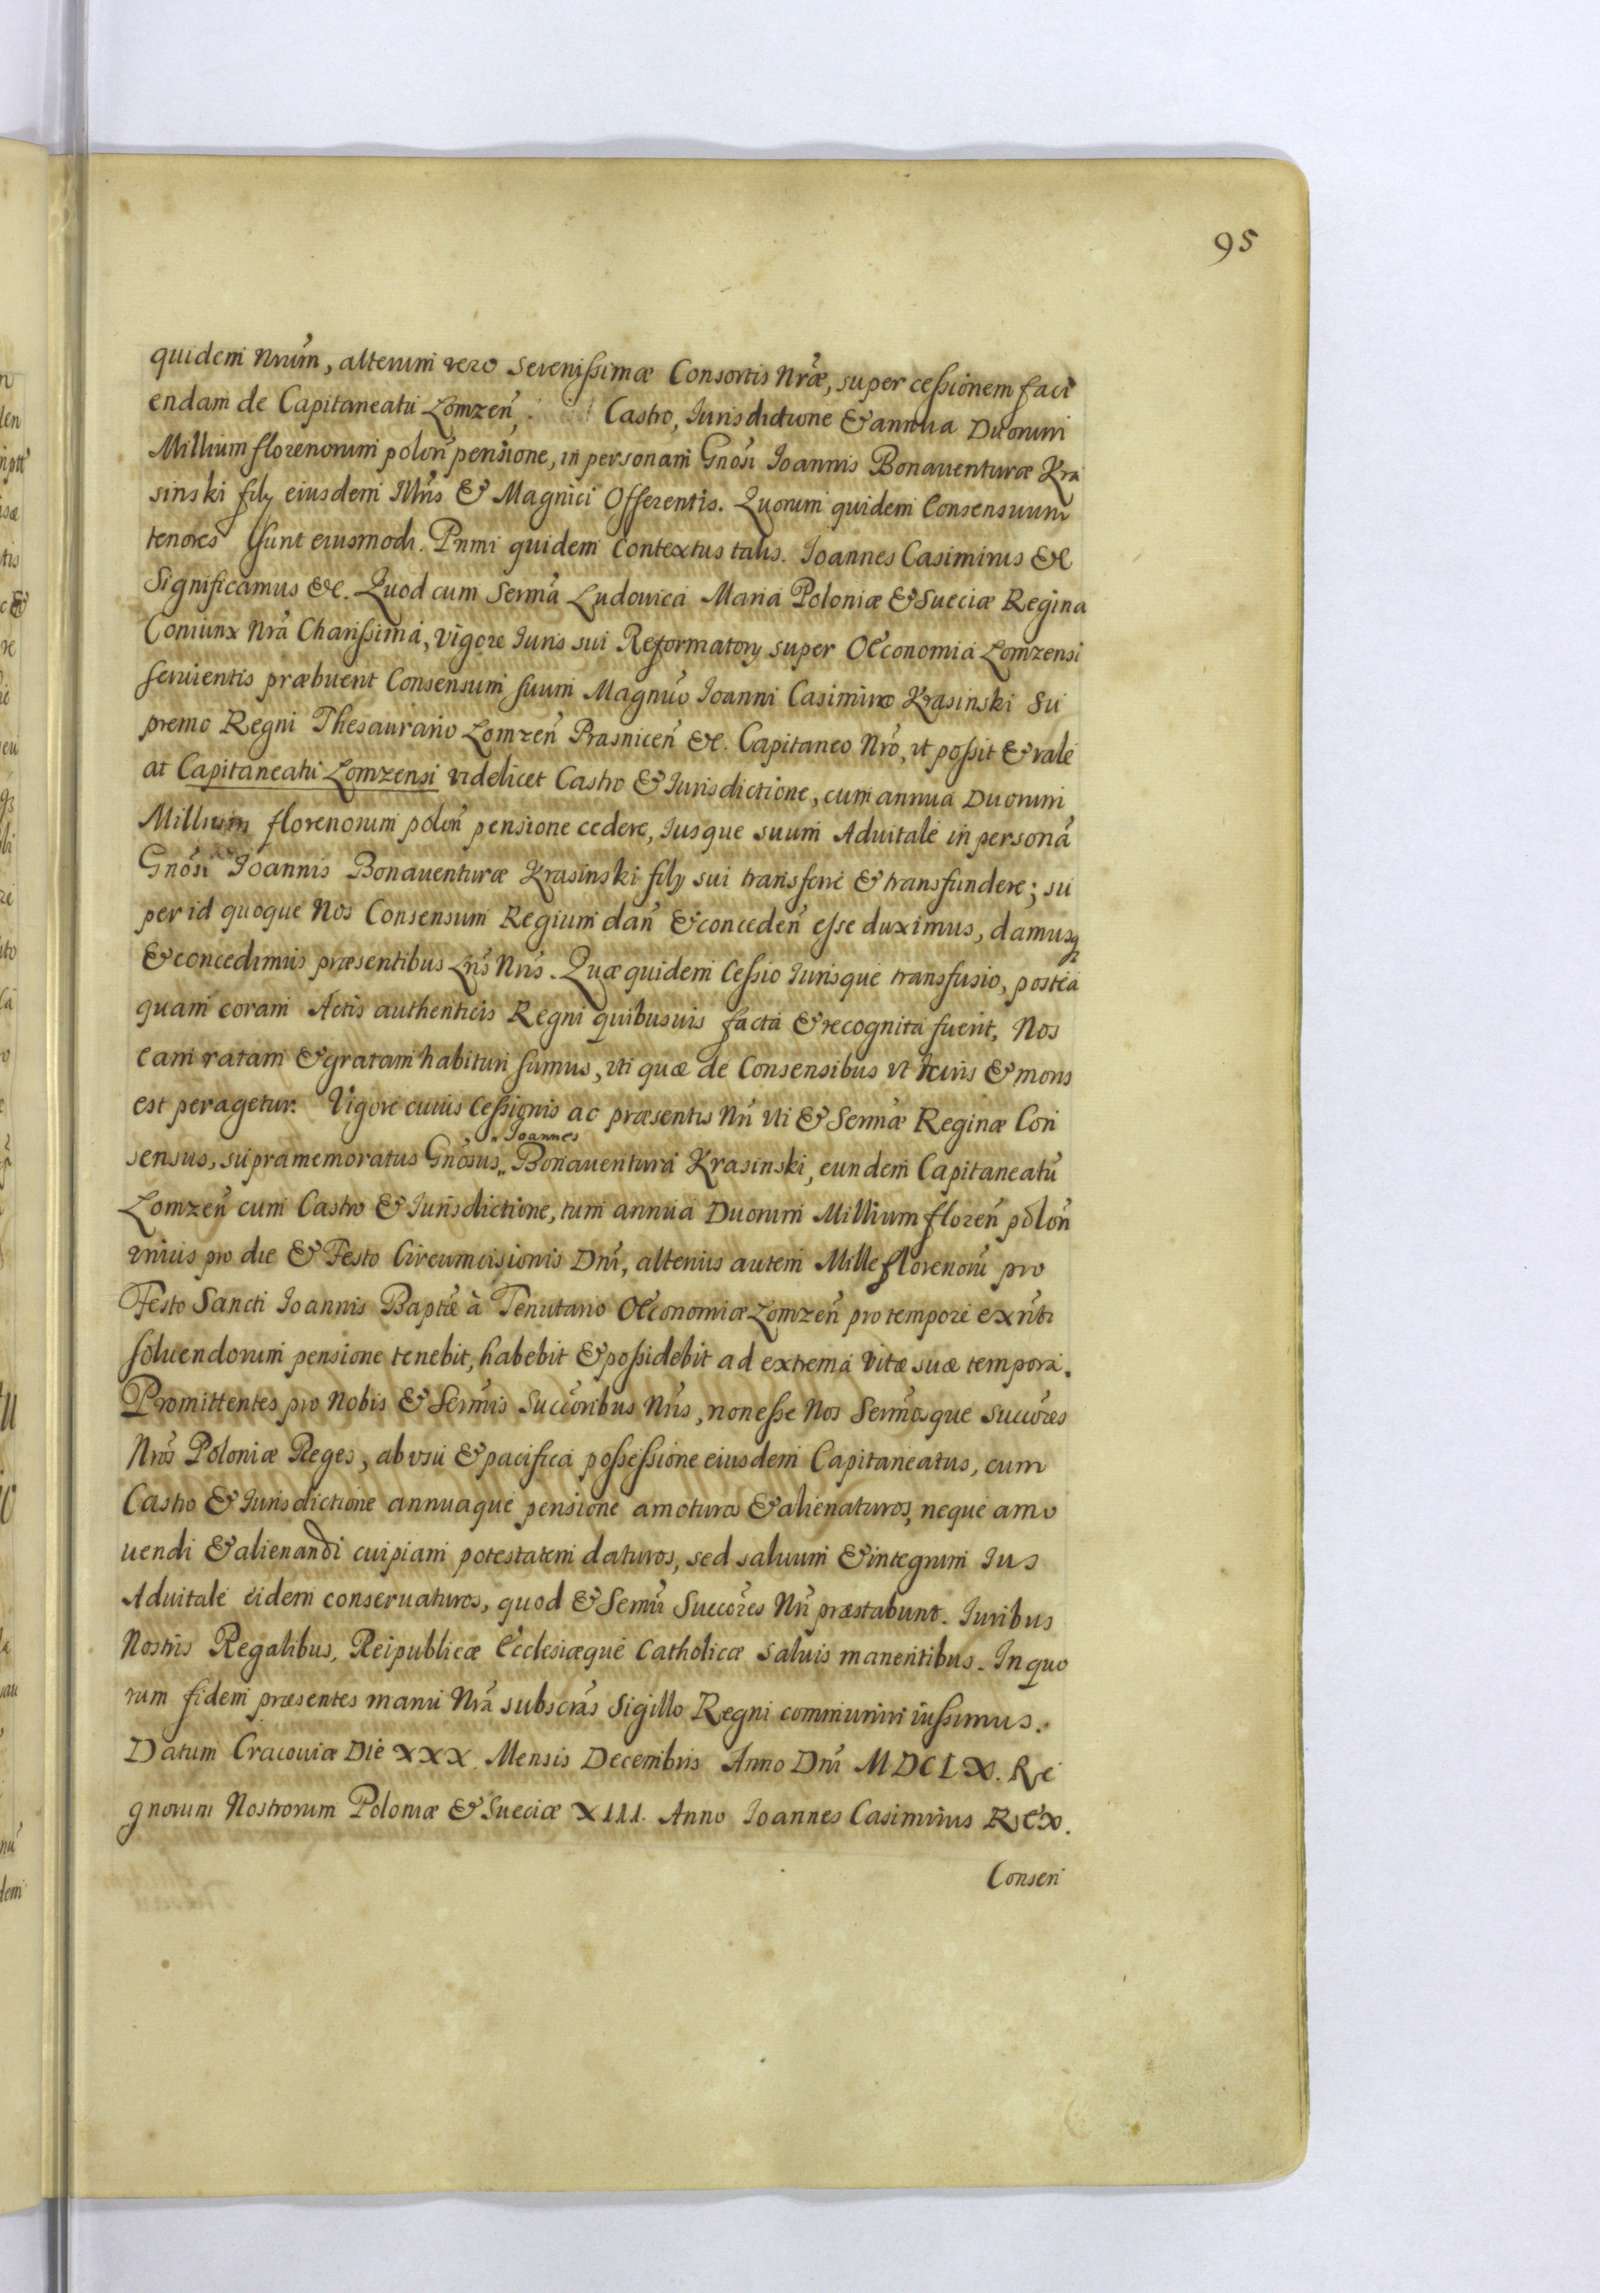 95
quidem Nrum, alterum vero Serenissimæ Consortis Nræ, super cessionem faci
endam de Capitaneatu Lomzen, Castro, Iurisdictione & annua Duorum
Millium florenorum polon pensione, in personam Gnosi Ioannis Bonauenturæ Kra
sinski filÿ eiusdem Illris & Magnici Offerentis. Quorum quidem Consensuum
tenores sunt eiusmodi. Primi quidem Contextus talis. Ioannes Casimirus &c
Significamus &c. Quod cum Serma Ludouica Maria Poloniæ & Sueciæ Regina
Coniunx Nra Charissima, vigore Iuris sui Reformatorÿ super Oeconomia Lomzensi
seruientis præbuerit Consensum suum Magnco Ioanni Casimiro Krasinski Su
premo Regni Thesaurario Lomzen Prasnicen &c. Capitaneo Nro, vt possit & vale
at Capitaneatu Lomzensi videlicet Castro & Iurisdictione, cum annua Duorum
Millium florenorum polon pensione cedere, Iusque suum Aduitale in persona
Gnosi Ioannis Bonauenturæ Krasinski filÿ sui transferre & transfundere; su
per id quoque Nos Consensum Regium dan & conceden esse duximus, damusq
& concedimus præsentibus Lris Nris. Quæ quidem Cessio Iurisque transfusio, postea
quam coram Actis authenticis Regni quibusuis facta & recognita fuerit, Nos
eam ratam & gratam habituri sumus, vti quæ de Consensibus vt Iuris & moris
est peragetur. Vigore cuius Cessionis ac præsentis Nri vti & Sermæ Reginæ Con
sensus, supramemoratus Gnosus „ Ioannes „ Bonauentura Krasinski, eundem Capitaneatu
Lomzen cum Castro & Iurisdictione, tum annua Duorum Millium floren polon
vnius pro die & Festo Circumcisionis Dni, alterius autem Mille florenoru pro
Festo Sancti Ioannis Baptæ à Tenutario Oeconomiæ Lomzen pro tempore exnti
soluendorum pensione tenebit, habebit & possidebit ad extrema vitæ suæ tempora.
Promittentes pro Nobis & Sermis Succoribus Nris, non esse Nos Sermosque Succores
Nros Poloniæ Reges, ab vsu & pacifica possessione eiusdem Capitaneatus, cum
Castro & Iurisdictione annuaque pensione amoturos & alienaturos, neque amo
uendi & alienandi cuipiam potestatem daturos, sed saluum & integrum Ius
Aduitale eidem conseruaturos, quod & Sermi Succores Nri præstabunt. Iuribus
Nostris Regalibus, Reipublicæ Ecclesiæque Catholicæ saluis manentibus. In quo
rum fidem præsentes manu Nra subscras Sigillo Regni communiri iussimus.
Datum Cracouiæ Die XXX. Mensis Decembris Anno Dni MDCLX. Re
gnorum Nostrorum Poloniæ & Sueciæ XIII. Anno Ioannes Casimirus REX.
Consen